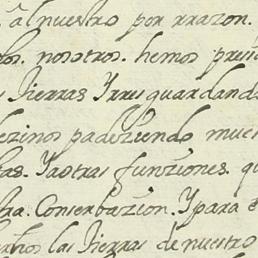 â l nuestro por rrazon.
nosotros. hemos
tierras Y rres guardand
vezinos padeziendo mue
Y aotras funziones. q
ra. Conserbazion. Y para e
las tierras de nuestro